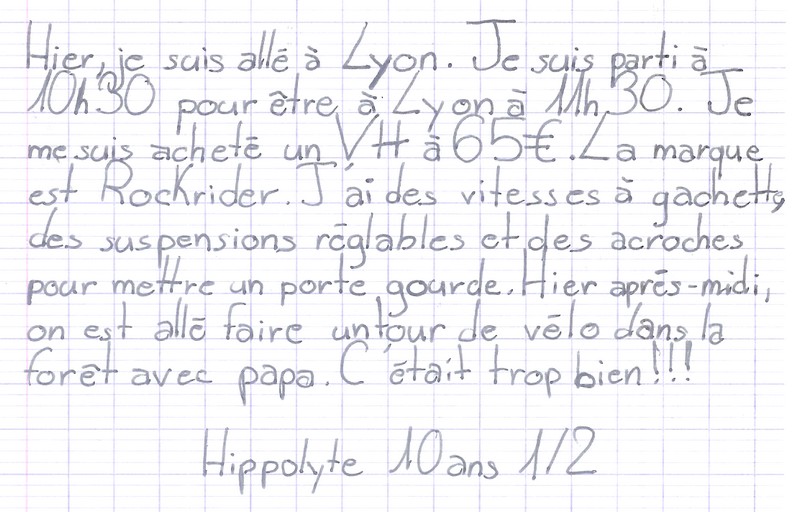 Hier, je suis allé à Lyon. Je suis parti à
10h30 pour être à Lyon à 11h30. Je
me suis acheté un VTT à 65€. La marque
est Rockrider. J'ai des vitesses à gachette,
des suspensions réglables et des acroches
pour mettre un porte gourde. Hier après-midi,
on est allé faire un tour de vélo dans la
forêt avec papa. C'était trop bien!!!
Hippolyte 10 ans 1/2